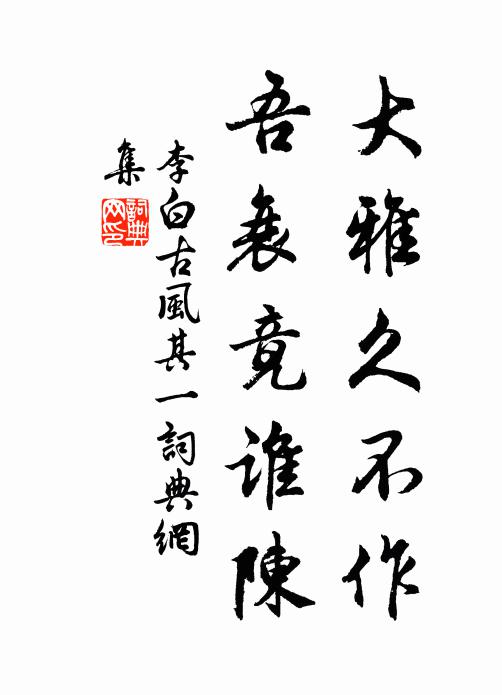 大雅久不作
吾衰竟谁陳
李白古風其一詞典網
集
詞典
网印